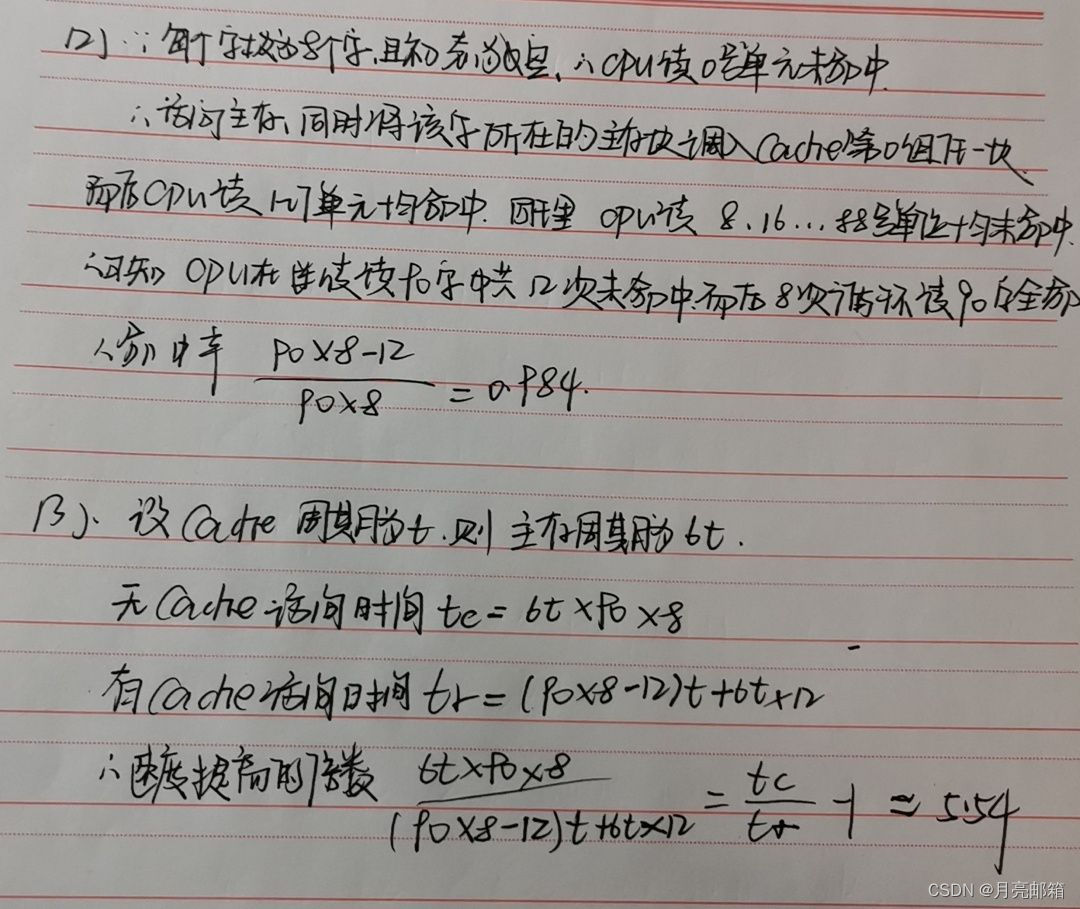 (2) ∵每个字块为8个字,且初态为空,∴CPU读0号单元未命中.
∴访问主存,同时将该字所在的主存块调入Cache第0组任一块
而后CPU读1~7单元均命中.同理 CPU读 8、16...88号单位均未命中.
∴可知 CPU在连续读90字中共12次未命中,而后8次循环读90字全命
∴命中率 \frac{90×8-12}{90×8} = 0.984.
(3). 设Cache周期为t.则主存周期为6t.
无Cache访问时间tc= 6t×90×8
有Cache访问时间tr=(90×8-12)t+6t×12
∴速度提高的倍数 \frac{6t×90×8}{(90×8-12)t+6t×12} = \frac{tc}{tr} -1 ≈ 5.54
CSDN @月亮邮箱